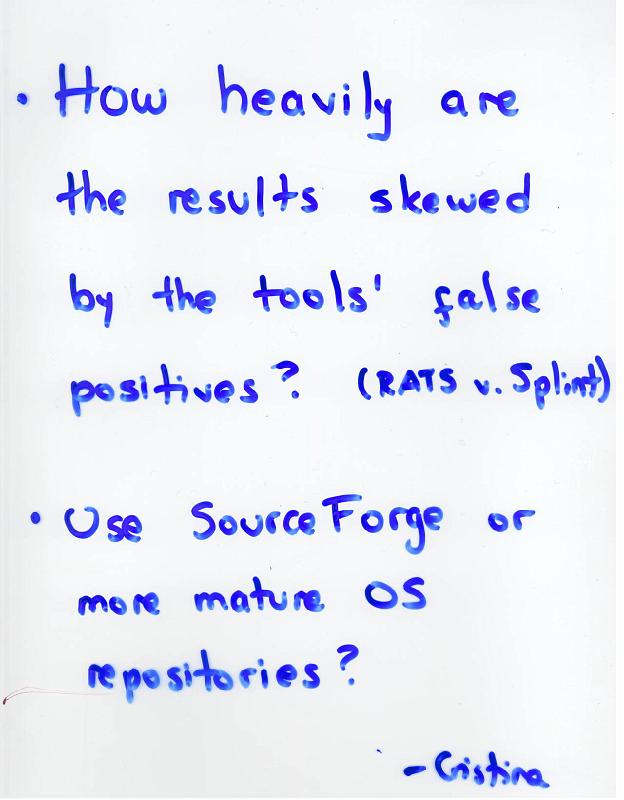 • How heavily are
the results skewed
by the tools' false
positives? (RATS v. Splint)
• Use SourceForge or
more mature OS
repositories?
- Cristina